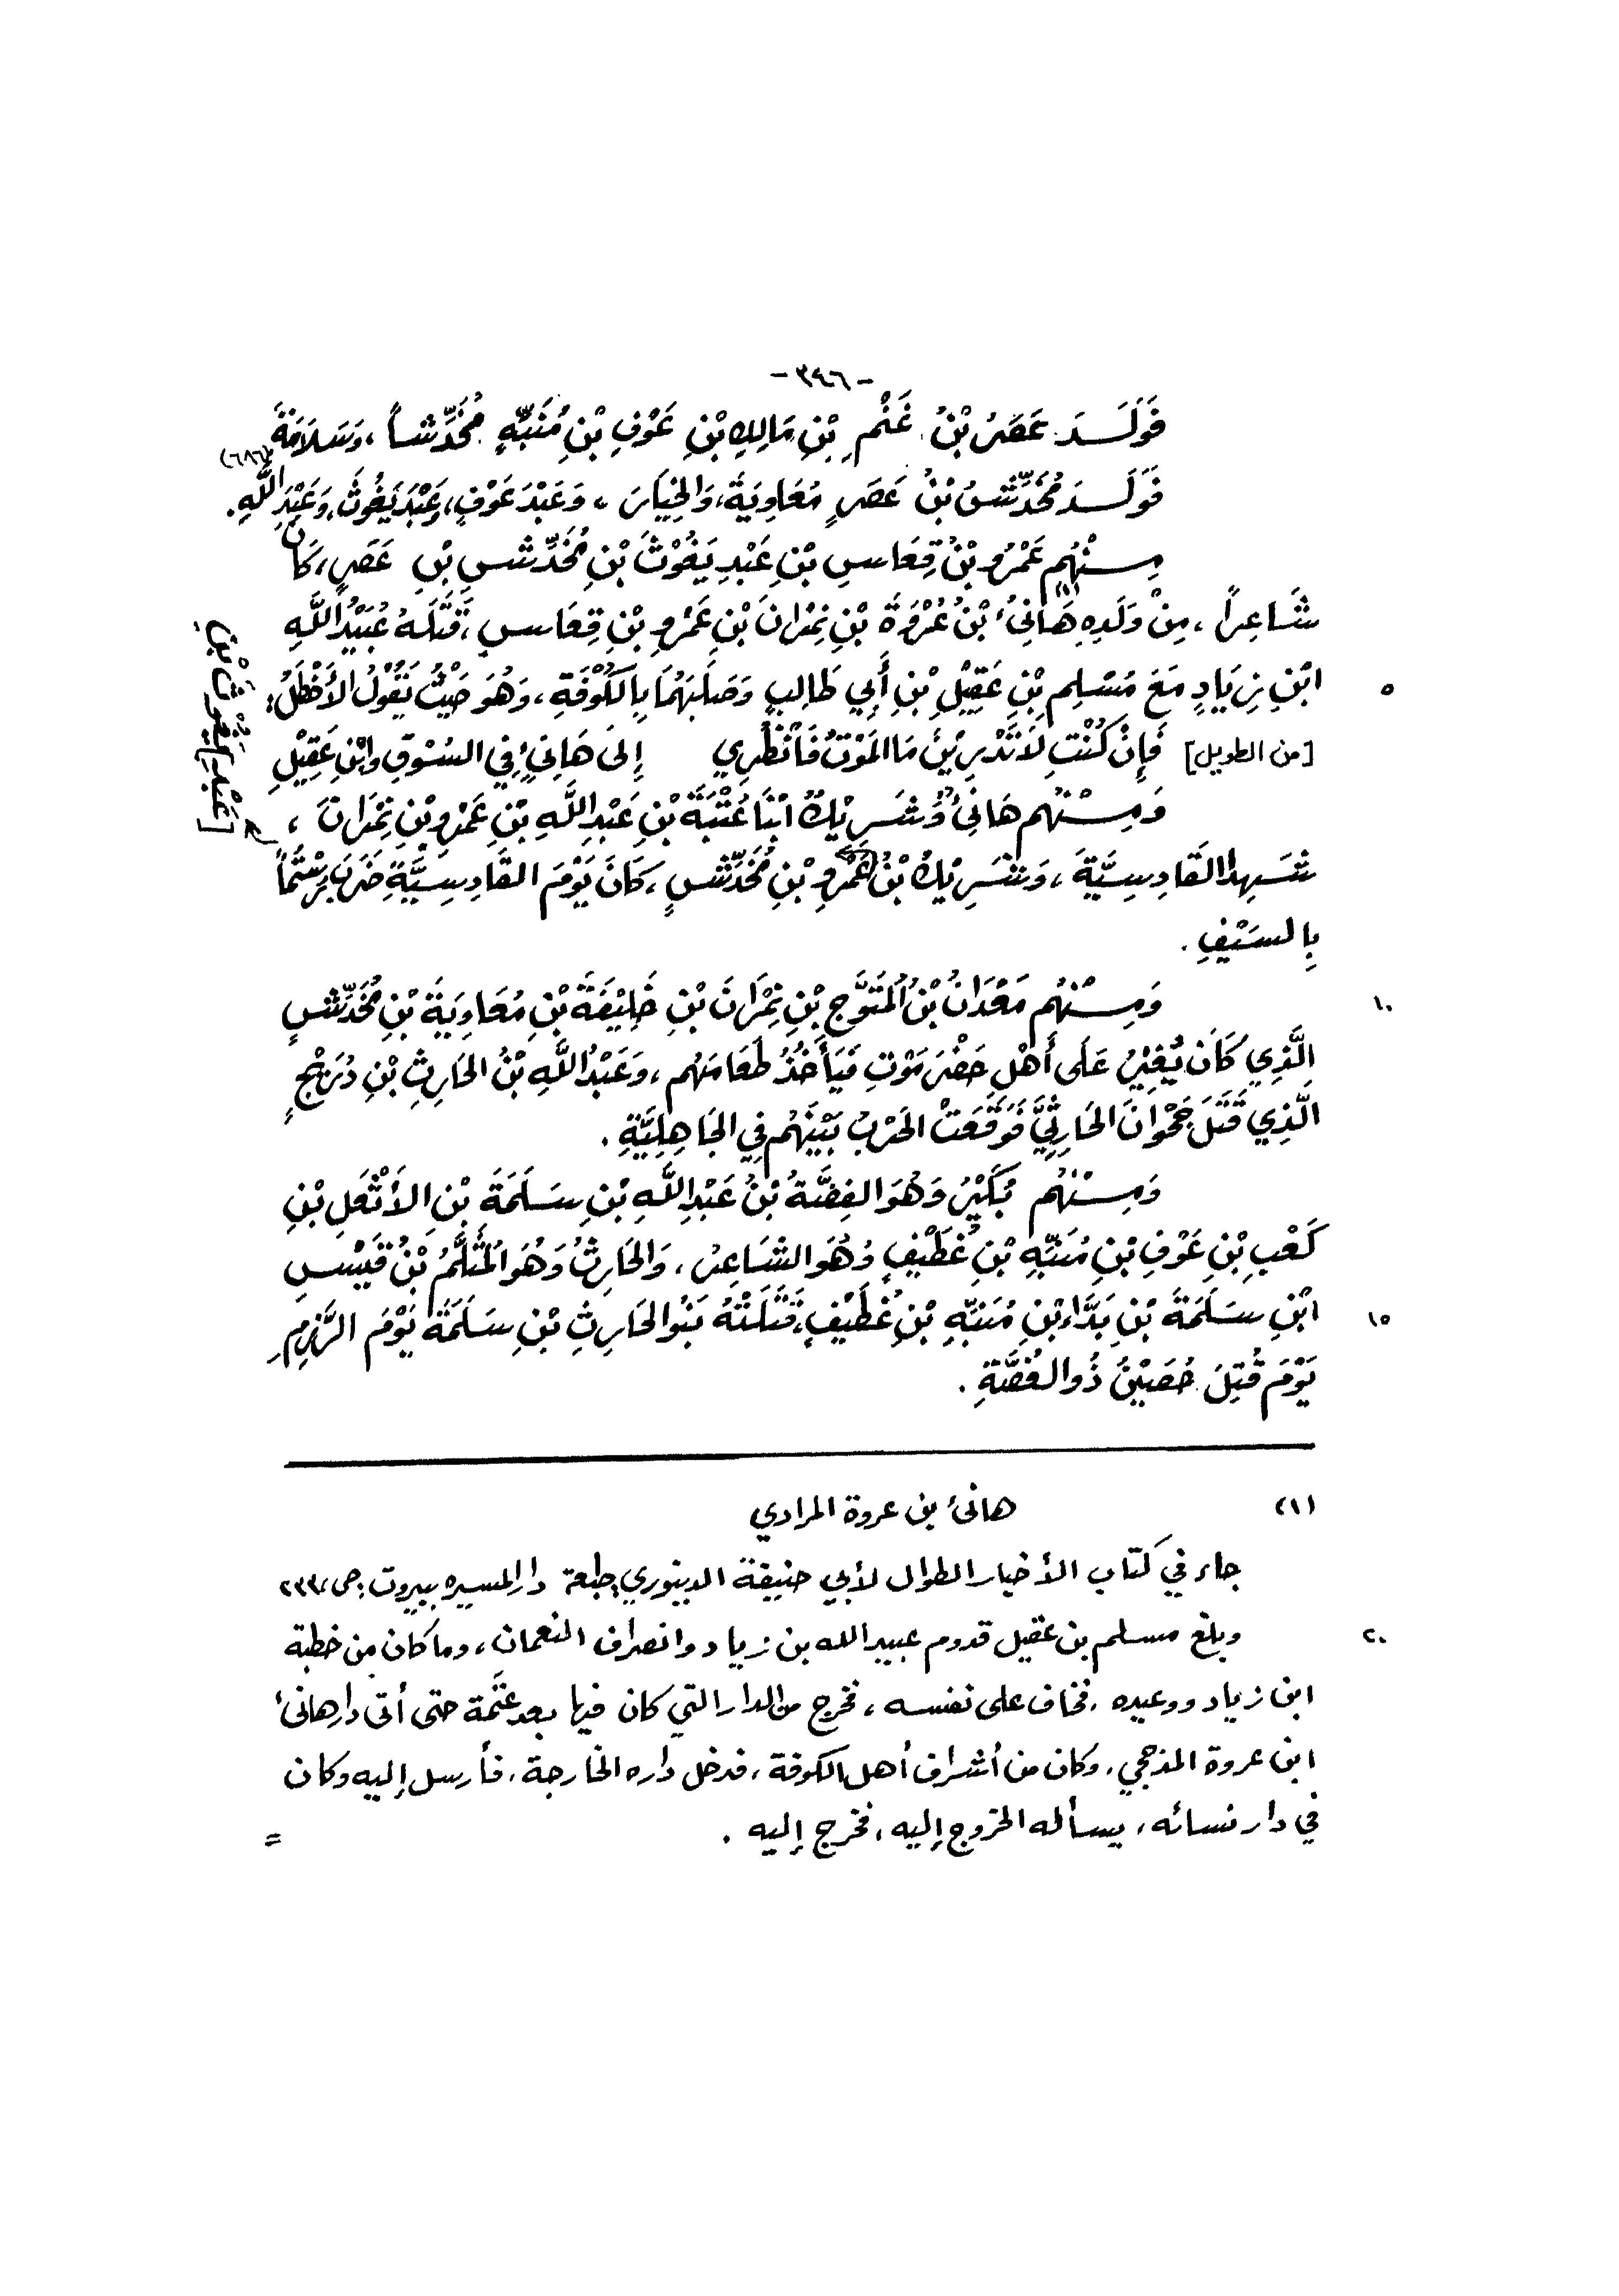 -٣٤٦-
فَوَلَـدَ عَصَرُ بْنُ غَنْمِ بْنِ مَالِكِ بْنِ عَوْفِ بْنِ مُنَبِّهٍ مُخَدِّشاً، وَسَلَامَةَ (٦٨٦)
فَوَلَـدَ مُخَدِّشُ بْنُ عَصَرٍ مُعَاوِيَةَ، وَالخِيَارَ، وَعَبْدَ عَوْفٍ، وَعَبْدَ يَغُوثَ، وَعَبْدَ اللَّهِ.
مِنْهُم عَمْرُو بْنُ قِعَاسِ بْنِ عَبْدِ يَغُوْثَ بْنِ مُخَدِّشِ بْنِ عَصَرٍ، كَانَ
شَاعِراً، مِنْ وَلَدِهِ هَانِئُ (١) بْنُ عُرْوَةَ بْنِ نِمْرَانَ بْنِ عَمْرِو بْنِ قِعَاسٍ، قَتَلَهُ عُبَيْدُ اللَّهِ
٥ ابْنِ زِيَادٍ مَعَ مُسْلِمِ بْنِ عَقِيْلِ بْنِ أَبِي طَالِبٍ وَصَلَبَهُمَا بِالكُوْفَةِ، وَهُوَ حَيْثُ يَقُوْلُ الأَخْطَلُ:
[من الطويل] فَإِنْ كُنْتِ لَا تَدْرِيْنَ مَا المَوْتُ فَانْظُرِي إِلَى هَانِئٍ فِي السُّوْقِ وابْنِ عَقِيْلِ
وَمِـنْهُم هَانِئُ وَشَرِيْكُ ابْنَا عُتْبَةَ بْنِ عَبْدِ اللَّهِ بْنِ عَمْرِو بْنِ نِمْرَانَ،
شَهِدَا القَادِسِيَّةَ، وَشَرِيْكُ بْنُ عَمْرِو بْنِ مُخَدِّشٍ، كَانَ يَوْمَ القَادِسِيَّةِ ضَرَبَ رُسْتُماً
[عَبْدِ يَغُوْثَ بْنِ]
بِالسَّيْفِ.
١٠ وَمِـنْهُم مَعْدَانُ بْنُ المُتَوَّجِ بْنِ نِمْرَانَ بْنِ خَلِيْفَةَ بْنِ مُعَاوِيَةَ بْنِ مُخَدِّشٍ
الَّذِي كَانَ يُغِيْرُ عَلَى أَهْلِ حَضْرَمَوْتِ فَيَأْخُذُ طَعَامَهُم، وَعَبْدُ اللَّهِ بْنُ الحَارِثِ بْنِ دُرَيْجٍ
الَّذِي قَتَلَ جَحْوَانَ الحَارِثِيَّ فَوَقَعَتْ الحَرْبُ بَيْنَهُم فِي الجَاهِلِيَّةِ.
وَمِـنْهُم بُكَيْرُ وَهُوَ الفِضَّةُ بْنُ عَبْدِ اللَّهِ بْنِ سَلَمَةَ بْنِ الأَثْعَلِ بْنِ
كَعْبِ بْنِ عَوْفِ بْنِ مُنَبِّهِ بْنِ غُطَيْفٍ وَهُوَ الشَّاعِرُ، وَالحَارِثُ وَهُوَ المُثَلَّمُ بْنُ قَيْسِ
١٥ ابْنِ سَلَمَةَ بْنِ بَدَّاءِ بْنِ مُنَبِّهِ بْنِ غُطَيْفٍ، قَتَلَتْهُ بَنُو الحَارِثِ بْنِ سَلَمَةَ يَوْمَ الرَّزْمِ
يَوْمَ قُتِلَ حُصَيْنُ ذُو الغُصَّةِ.
(١) هانئ بن عروة المرادي
جاء في كتاب الأخبار الطوال لأبي حنيفة الدينوري، طبعة دار المسيره ببيروت: ص، ٢٣٣
٢٠ وبلغ مسلم بن عقيل قدوم عبيد الله بن زياد وانصراف النعمان، وما كان من خطبة
ابن زياد ووعيده، فخاف على نفسه، فخرج من الدار التي كان فيها بعد عتمة حتى أتى دار هانئ
ابن عروة المذحجي، وكان من أشراف أهل الكوفة، فدخل داره الخارجة، فأرسل إليه وكان
في دار نسائه، يسأله الخروج إليه، فخرج إليه. =